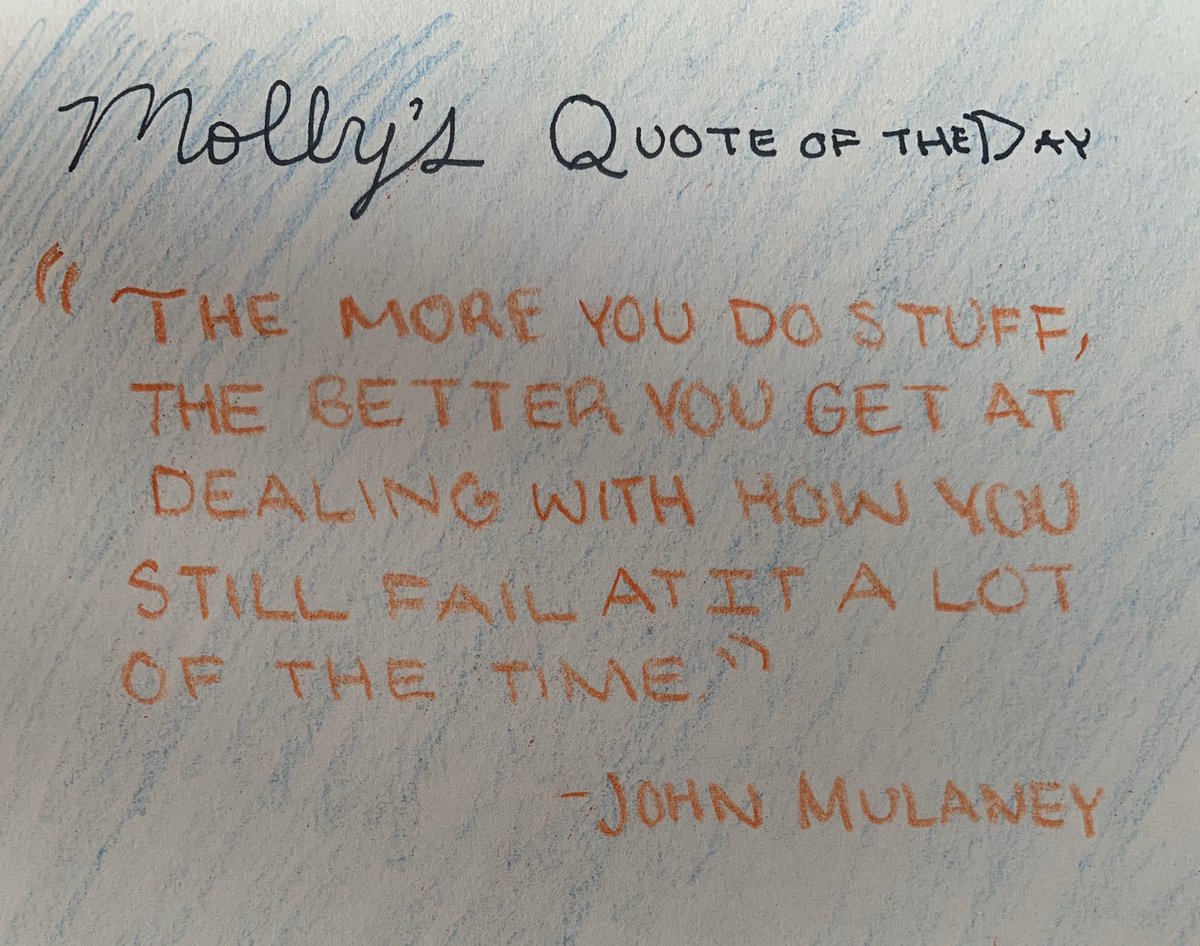 Molly's QUOTE OF THE DAY
"THE MORE YOU DO STUFF,
THE BETTER YOU GET AT
DEALING WITH HOW YOU
STILL FAIL AT IT A LOT
OF THE TIME."
-JOHN MULANEY